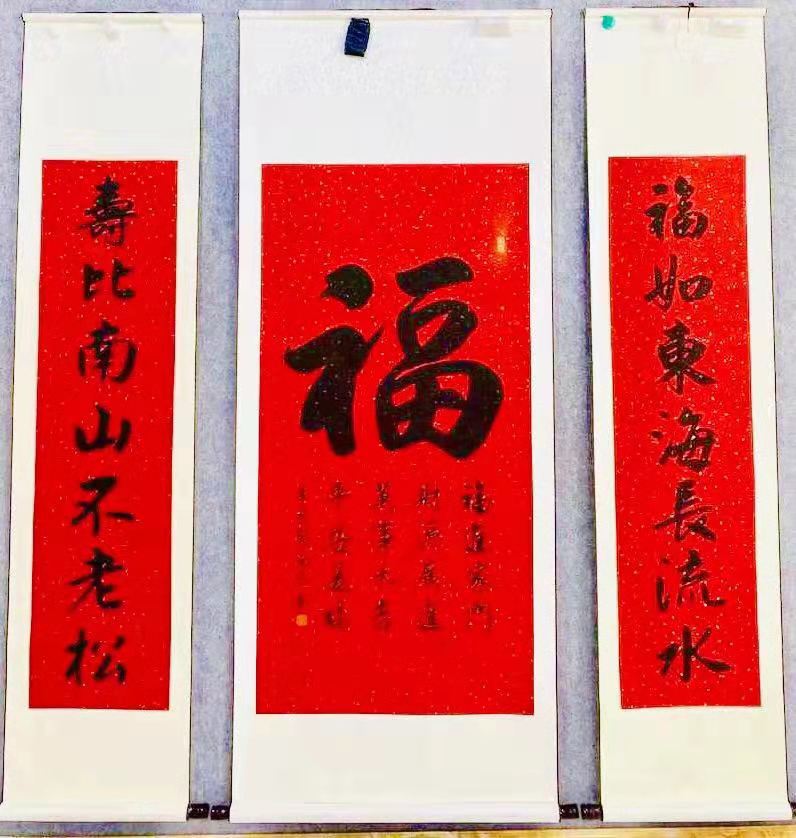 福如東海長流水
福
福進家門
財源廣進
萬事大吉
平安長
壽比南山不老松